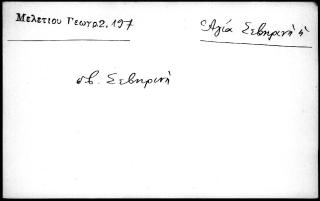 Μελετίου Γεωγρ. 2. 197
Ἁγία Σεβηρινὴ ἡ
σβ. Σεβηρινὴ